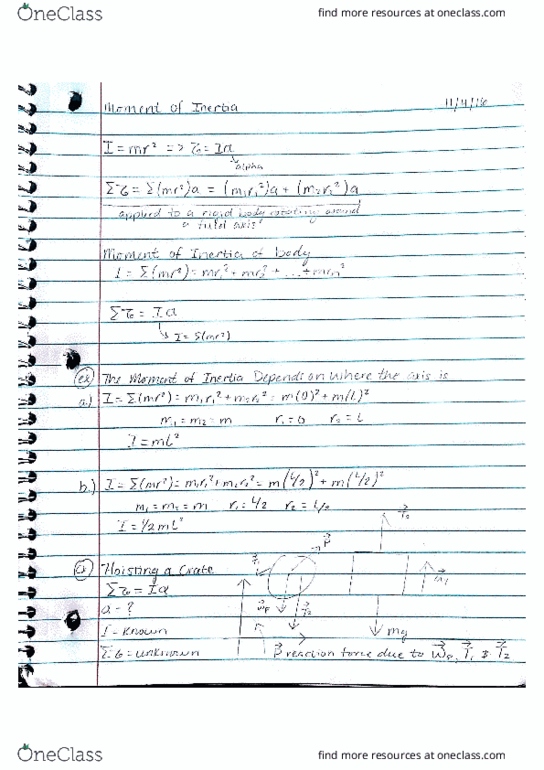 OneClass find more resources at oneclass.com
Moment of Inertia 11/4/16
I = mr² => τ = Iα
alpha
Στ = Σ(mr²)α = (m₁r₁²)α + (m₂r₂²)α
applied to a rigid body rotating around
a fixed axis
Moment of Inertia of body
I = Σ(mr²) = mr₁² + mr₂² + ... + mrn²
Στ = Iα
I = Σ(mr²)
ex The Moment of Inertia Depends on where the axis is
a.) I = Σ(mr²) = m₁r₁² + m₂r₂² = m(0)² + m(L)²
m₁ = m₂ = m r₁ = 0 r₂ = L
I = mL²
b.) I = Σ(mr²) = m₁r₁² + m₂r₂² = m(L/2)² + m(L/2)²
m₁ = m₂ = m r₁ = L/2 r₂ = L/2
I = 1/2 mL²
ex Hoisting a Crate
Στ = Iα
α - ?
I - known
mg
Στ = unknown P reaction force due to Wp, T₁ & T₂
OneClass find more resources at oneclass.com